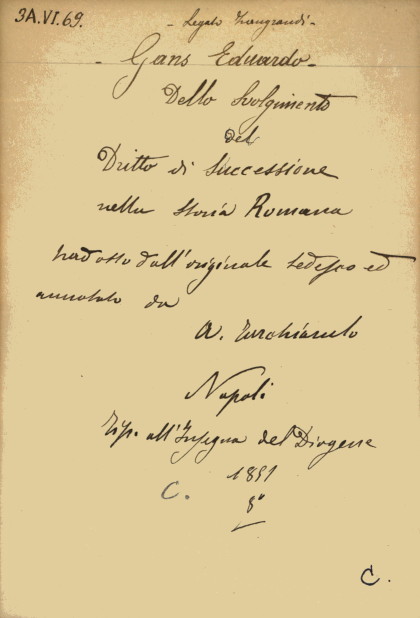 3A.VI.69.
- Legato Zangrandi -
- Gans Eduardo -
Dello Svolgimento
del
Dritto di Successione
nella Storia Romana
tradotto dall'originale tedesco ed
annotato da
A. Turchiarulo
Napoli
Tip. all'Insegna del Diogene
1851
8°
C.
C.